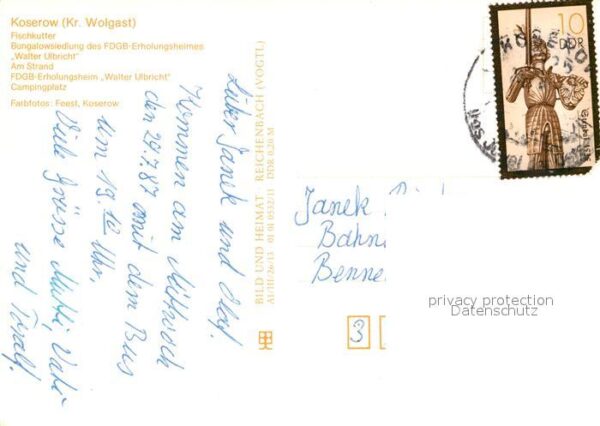 Koserow (Kr. Wolgast)
Fischkutter
Bungalowsiedlung des FDGB-Erholungsheimes
„Walter Ulbricht"
Am Strand
FDGB-Erholungsheim „Walter Ulbricht"
Campingplatz
Farbfotos: Feest, Koserow
Lieber Janek und Olaf.
Kommen am Mittwoch
den 29.7.87 mit dem Bus
um 19.12 Uhr.
Viele Grüsse Mutti, Vati
und Toralf.
BILD UND HEIMAT REICHENBACH (VOGTL)
A1/III/26/13 01 01 0532/11 DDR 0,20 M
10
DDR
Janek
Bahn
Benne
3
privacy protection
Datenschutz